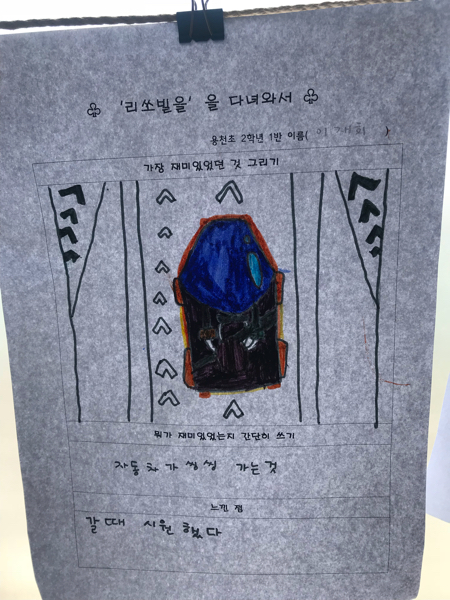 ♧ '리쏘빌을' 을 다녀와서 ♧
용천초 2학년 1반 이름( 이 )
가장 재미있었던 것 그리기
뭐가 재미있었는지 간단히 쓰기
자동차가 씽씽 가는것
느낀 점
갈때 시원했다